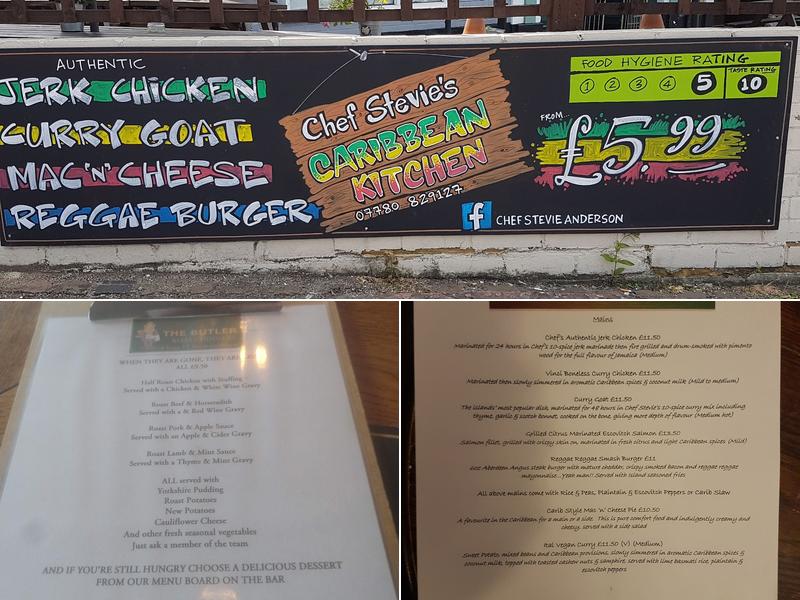 AUTHENTIC
JERK CHICKEN
CURRY GOAT
MAC 'N' CHEESE
REGGAE BURGER
Chef Stevie's
CARIBBEAN
KITCHEN
07780 829127
f CHEF STEVIE ANDERSON
FOOD HYGIENE RATING
1 2 3 4 5
TASTE RATING
10
FROM...
£5.99
THE BUTLER
WHEN THEY ARE GONE, THEY ARE
ALL £9.50
Half Roast Chicken with Stuffing
Served with a Chicken & White Wine Gravy
Roast Beef & Horseradish
Served with a & Red Wine Gravy
Roast Pork & Apple Sauce
Served with an Apple & Cider Gravy
Roast Lamb & Mint Sauce
Served with a Thyme & Mint Gravy
ALL served with
Yorkshire Pudding
Roast Potatoes
New Potatoes
Cauliflower Cheese
And other fresh seasonal vegetables
Just ask a member of the team
AND IF YOU'RE STILL HUNGRY CHOOSE A DELICIOUS DESSERT
FROM OUR MENU BOARD ON THE BAR
Mains
Chef's Authentic Jerk Chicken £11.50
Marinated for 24 hours in Chef's 10-spice jerk marinade then fire grilled and drum-smoked with pimento
wood for the full flavour of Jamaica (Medium)
Vinci Boneless Curry Chicken £11.50
Marinated then slowly simmered in aromatic Caribbean spices & coconut milk (Mild to medium)
Curry Goat £11.50
The islands' most popular dish, marinated for 48 hours in Chef Stevie's 10-spice curry mix including
thyme, garlic & scotch bonnet, cooked on the bone, giving more depth of flavour (Medium hot)
Grilled Citrus Marinated Escovitch Salmon £13.50
Salmon fillet, grilled with crispy skin on, marinated in fresh citrus and light Caribbean spices (Mild)
Reggae Reggae Smash Burger £11
6oz Aberdeen Angus steak burger with mature cheddar, crispy smoked bacon and reggae reggae
mayonnaise...Yeah man!! Served with island seasoned fries
All above mains come with Rice & Peas, Plantain & Escovitch Peppers or Carib Slaw
Carib Style Mac 'n' Cheese Pie £10.50
A favourite in the Caribbean for a main or a side. This is pure comfort food and indulgently creamy and
cheesy, served with a side salad
Ital Vegan Curry £11.50 (V) (Medium)
Sweet Potato, mixed beans and Caribbean provisions, slowly simmered in aromatic Caribbean spices &
coconut milk, topped with toasted cashew nuts & samphire, served with lime basmati rice, plantain &
escovitch peppers